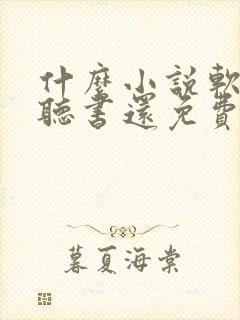 什麼小說軟
聽書還免費
暮夏海棠